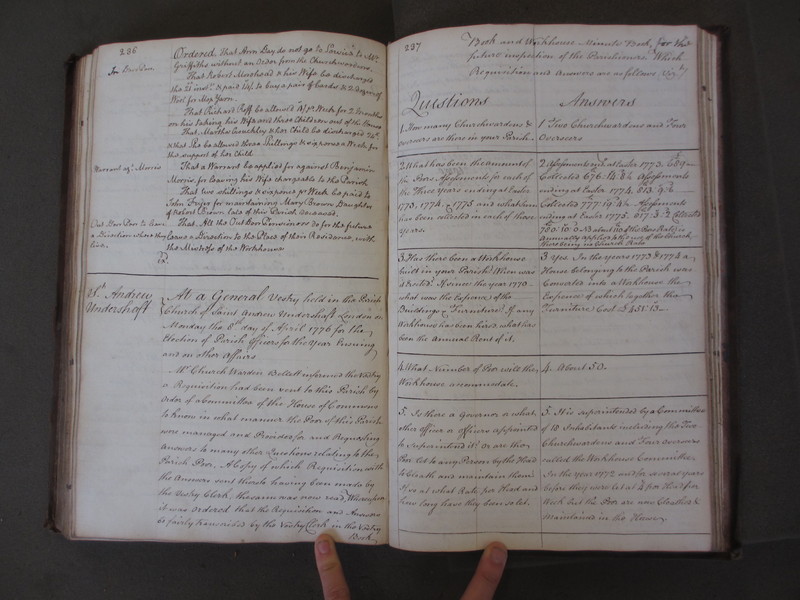 236
In Burdon
Ordered, That Ann Day do not go to to Mr.
Griffiths without an Order from the Churchwardens.
That Robert Morshead & his Wife be discharged
the 21 inst. & paid to buy a pair of Cards & 2 Degrees of
Wool for Mop Yarn.
That Richard Poff be allowed 4/ p Week for 2 Months
on his taking his Wife and three Children out of the House
That Martha & her Child be discharged
& that She be allowed three Shillings & sixpence a Week for
the support of her Child.
Warrant agt. Morris
That a Warrant be applied for against Benjamin
Morris, for leaving his Wife chargeable to the Parish
That two shillings & sixpence p Week be paid to
John for maintaining Mary Brown Daughter
of Robert Brown late of this Parish deceased.
Out Door Poor to leave
a Direction where they
live.
That, All the Out door Pensioners do for the future
leave a Direction to the Place of their Residence, with
the Mistress of the Workhouse.
Ex.
St. Andrew
Undershaft
At a General Vestry held in the Parish
Church of Saint Andrew Undershaft London on
Monday the 8th day of April 1776 for the
Election of Parish Officers for the Year Ensuing
and on other Affairs
Mr. Church Warden Bellett informed the Vestry
a Requisition had been sent to this Parish by
Order of a Committee of the House of Commons
to know in what manner the Poor of this Parish
were managed and Provided for and Requesting
Answers to many other Questions relating to the
Parish Poor, A Copy of which Requisition with
the Answers sent thereto having been made by
the Vestry Clerk, the same was now read, Whereupon
it was ordered that the Requisition and Answers
be fairly transcribed by the Vestry Clerk in the Vestry
Book
237
Book and Workhouse Minute Book, for the
future inspection of the Parishioners Which
Requisition and Answers are as follows
Questions
Answers
1. How many Churchwardens &
Overseers are there in your Parish.
1 Two Churchwardens and Four
Overseers
2. What has been the amount of
the Poors Assessments for each of
the Three years ending at Easter
1773, 1774, & 1775 and what sum
has been collected in each of those
years.
2 Assessments ending at Easter 1773.
Collected 676. 14. 8½ Assessments
ending at Easter 1774. 813. 9.
Collected 777. 19. Assessments
ending at Easter 1775. 817. 3. Collected
780. 10. 0 NB about of the Poors Rate is
annually applied to the use of the Church,
there being no Church Rate
3. Has there been a Workhouse
built in your Parish? When was
it Erected? If since the year 1770
what was the Expence of the
Buildings & Furniture? If any
Workhouse has been hired what has
been the Annual Rent of it.
3 Yes. In the years 1773 & 1774 a
House belonging to the Parish was
Converted into a Workhouse the
Expence of which together the
Furniture Cost £451. 13
4. What Number of Poor will the
Workhouse accommodate.
4. About 50.
5. Is there a Governor or what
other officer or officers appointed
to superintend it? or are the
Poor let to any Person by the Head
to Cloath and maintain them?
If so at what Rate per Head and
how long have they been so let.
5. It is superintended by a Committee
of 18 Inhabitants including the Two
Churchwardens and Four overseers
called the Workhouse Committee.
In the year 1772 and for several years
before they were let at p Head p
Week but the Poor are now Cloathed &
Maintained in the House